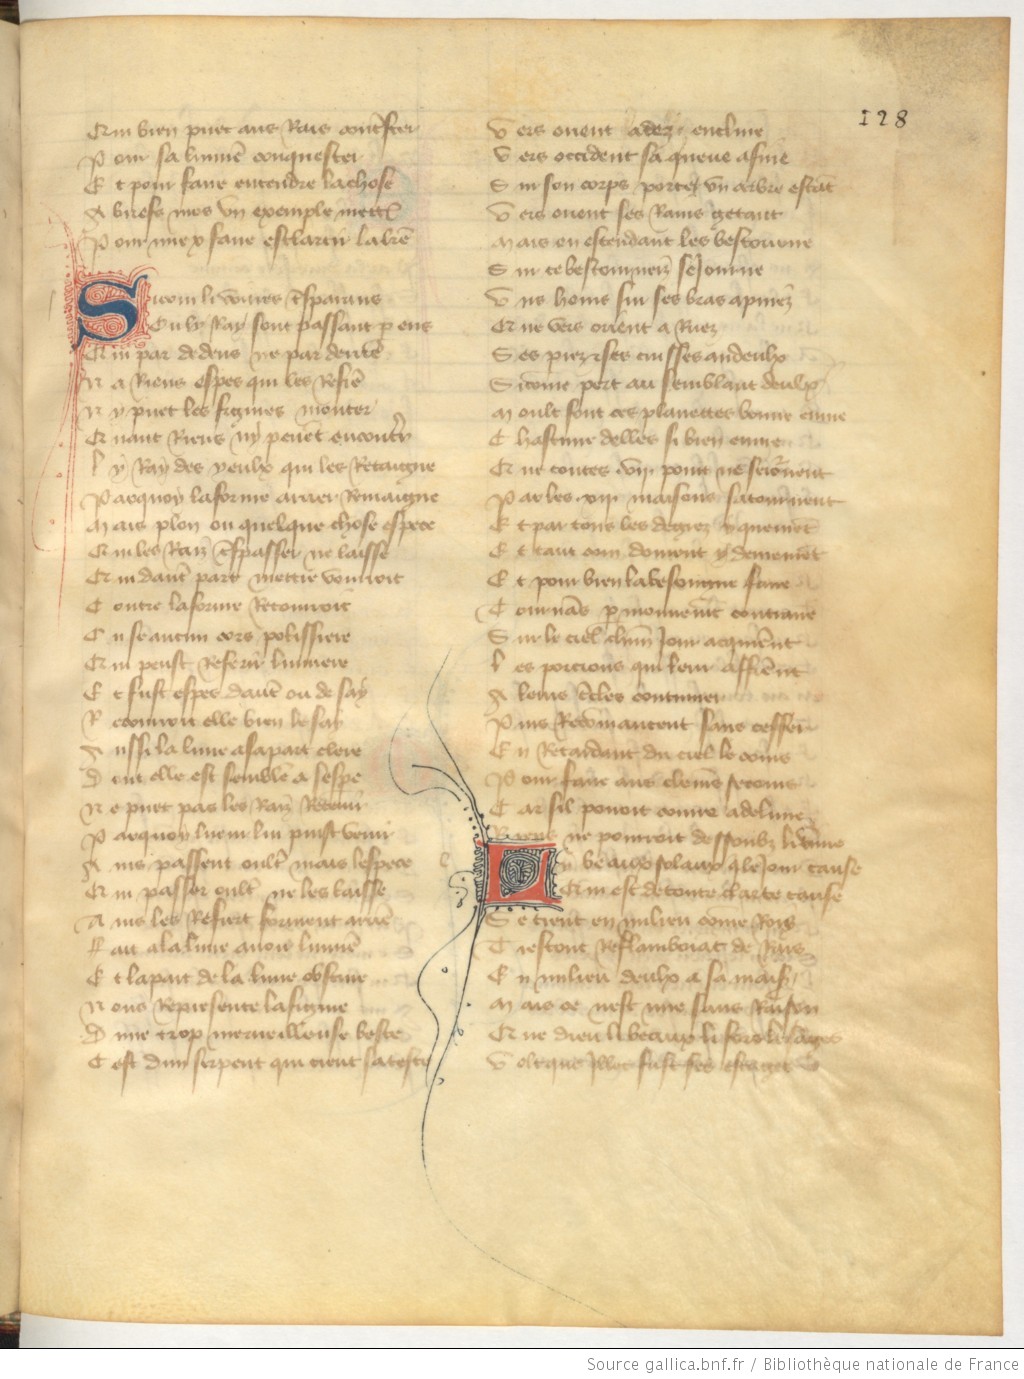 128
Qui bien puet aus Rais contrester
Pour sa lumiere conquester
Et pour faire entendre la chose
Pour miex faire esclarcir la lettre
Si com li voirres transparans
Ou ly Ray sont passant par ens
Qui par dedens ne par derriere
N a Riens espes qui les Refiere
N y puet les figures monter
Car nant Riens ny peuent encontrer
Ly Ray des yeulx qui les Retaigne
Par quoy la forme arrier Remaigne
Mais plon ou quelque chose espece
Qui les Rais trespasser ne laisse
Qui dautre part mettre vourroit
Contre la forme Retourroit
Ou se aucun cors polissiere
Qui peust Referir lumiere
Et fust espes dautre ou de say
Retourroit elle bien le say
Aussi la lune a sa part clere
Dont elle est semblable a sespere
Ne puet pas les Rais Retenir
Par quoy lueur lui puist venir
Ains passent oultre mais lespece
Qui passer oultre ne les laisse
Ains les Refiert forment arriere
Fait a la lune avoir lumiere
Et la part de la lune obscure
Nous Represente la figure
Dune trop merveilleuse beste
Cest dun serpent qui tient sa teste
Vers occident sa queue afine
Sur son corps porte un arbre estant
Vers orient ses Rains getant
Mais en estendant les bestourne
Sur ce bestourneis sejourne
Uns homs sur ses bras apuiez
Ses piez et ses cuisses andeulx
Si come pert au semblant deulx
Moult font ces planettes bonne euvre
Chascune delles si bien euvre
Par les .xii. maisons sa tournent
Et par tous les degrez
Et pour bien la besoingne faire
Sur le ciel chascun jour acquierent
Les porcions qui leur affierent
A leurs cercles continuer
Puis Recommancent sans cesser
En Retardant du ciel le cours
Pour faire aus elemens secours
Car sil povoit courre a delivre
Riens ne pourroit dessoubz li vivre
Ly beaux solaux qui le jour cause
Qui est de toute clarte cause
Se tient en milieu come Roys
Trestout Reflamboiant de Rais
En milieu deulx a sa maison
Mais ce nest mie sans Raison
Que dieu li beaux li fors li sages
Volt que illec fust ses estages